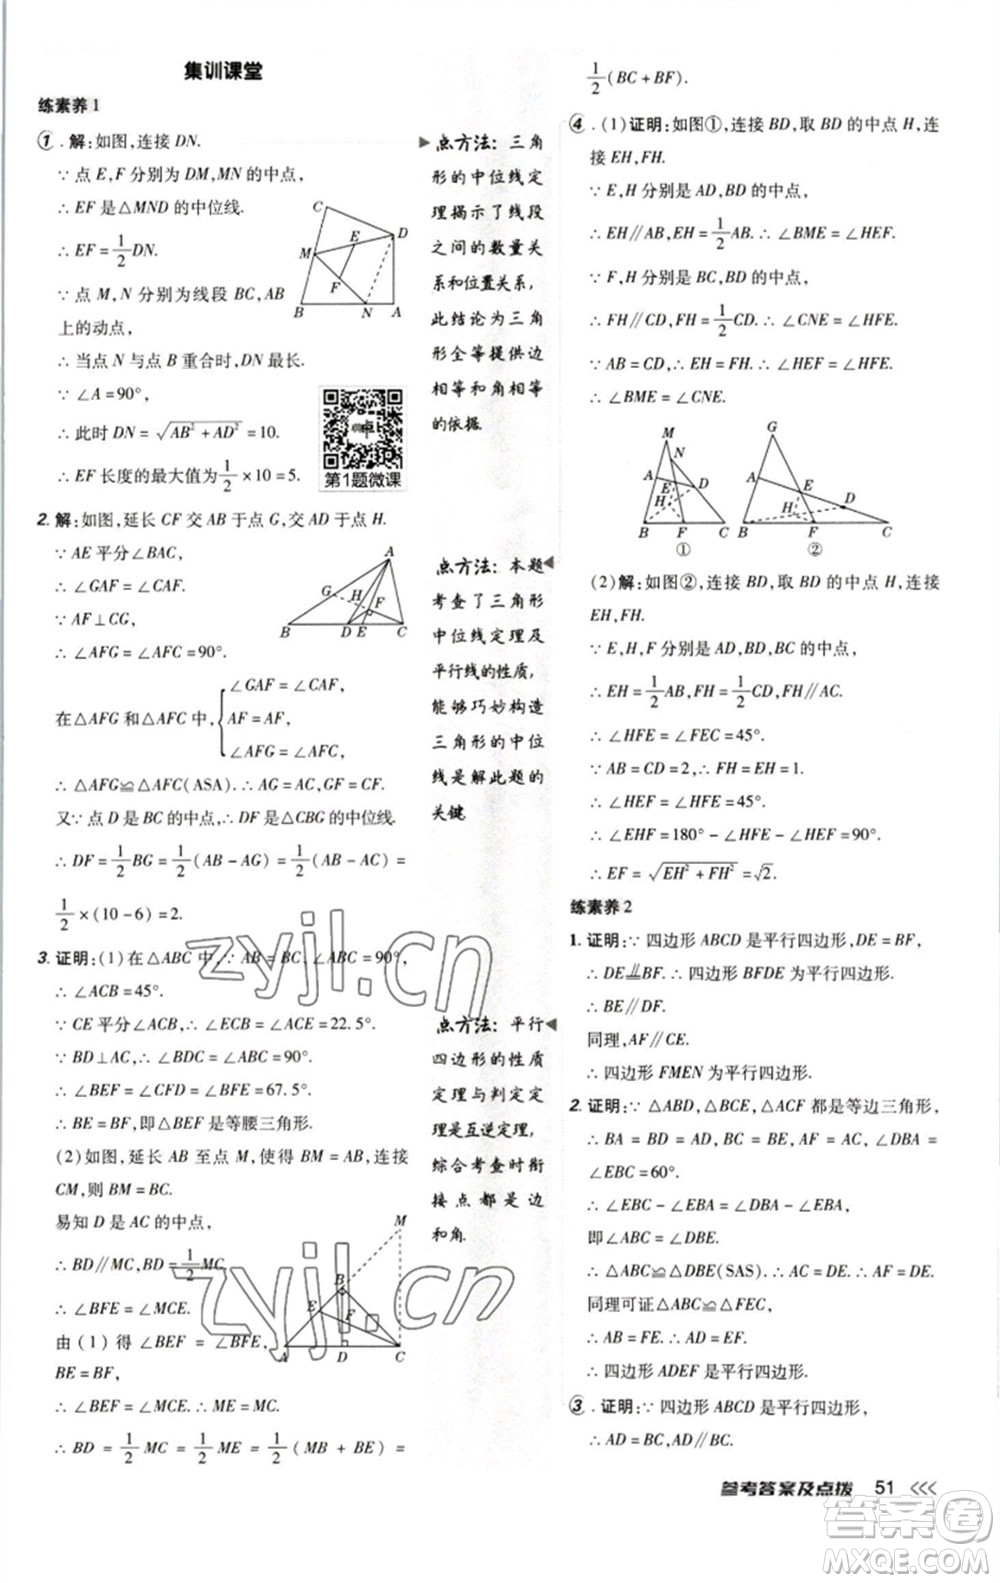 集训课堂
练素养 1
1. 解:如图,连接 DN.
∵ 点 E,F 分别为 DM,MN 的中点,
∴ EF 是△MND 的中位线.
∴ EF=1/2DN.
∵ 点 M,N 分别为线段 BC,AB
上的动点,
∴ 当点 N 与点 B 重合时,DN 最长.
∵ ∠A=90°,
∴ 此时 DN=√(AB²+AD²)=10.
∴ EF 长度的最大值为1/2×10=5.
C
D
E
M
F
B
N
A
第1题微课
2. 解:如图,延长 CF 交 AB 于点 G,交 AD 于点 H.
∵ AE 平分∠BAC,
∴ ∠GAF=∠CAF.
∵ AF⊥CG,
∴ ∠AFG=∠AFC=90°.
A
G
H
F
B
D
E
C
在△AFG 和△AFC 中,
∠GAF=∠CAF,
AF=AF,
∠AFG=∠AFC,
∴ △AFG≌△AFC(ASA). ∴ AG=AC,GF=CF.
又∵ 点 D 是 BC 的中点,∴ DF 是△CBG 的中位线.
∴ DF=1/2BG=1/2(AB-AG)=1/2(AB-AC)=
1/2×(10-6)=2.
3. 证明:(1)在△ABC 中,∵ AB=BC,∠ABC=90°,
∴ ∠ACB=45°.
∵ CE 平分∠ACB,∴ ∠ECB=∠ACE=22.5°.
∵ BD⊥AC,∴ ∠BDC=∠ABC=90°.
∴ ∠BEF=∠CFD=∠BFE=67.5°.
∴ BE=BF,即△BEF 是等腰三角形.
(2)如图,延长 AB 至点 M,使得 BM=AB,连接
CM,则 BM=BC.
易知 D 是 AC 的中点,
∴ BD∥MC,BD=1/2MC.
∴ ∠BFE=∠MCE.
由(1)得∠BEF=∠BFE,
BE=BF,
∴ ∠BEF=∠MCE. ∴ ME=MC.
∴ BD=1/2MC=1/2ME=1/2(MB+BE)=
M
B
E
F
A
D
C
点方法:三角
形的中位线定
理揭示了线段
之间的数量关
系和位置关系,
此结论为三角
形全等提供边
相等和角相等
的依据.
点方法:本题
考查了三角形
中位线定理及
平行线的性质,
能够巧妙构造
三角形的中位
线是解此题的
关键.
点方法:平行
四边形的性质
定理与判定定
理是互逆定理,
综合考查时衔
接点都是边
和角.
1/2(BC+BF).
4. (1)证明:如图①,连接 BD,取 BD 的中点 H,连
接 EH,FH.
∵ E,H 分别是 AD,BD 的中点,
∴ EH∥AB,EH=1/2AB. ∴ ∠BME=∠HEF.
∵ F,H 分别是 BC,BD 的中点,
∴ FH∥CD,FH=1/2CD. ∴ ∠CNE=∠HFE.
∵ AB=CD,∴ EH=FH. ∴ ∠HFE=∠HEF.
∴ ∠BME=∠CNE.
M
N
A
E
D
H
B
F
C
①
G
A
E
H
D
B
F
C
②
(2)解:如图②,连接 BD,取 BD 的中点 H,连接
EH,FH.
∵ E,H,F 分别是 AD,BD,BC 的中点,
∴ EH=1/2AB,FH=1/2CD,FH∥AC.
∴ ∠HFE=∠FEC=45°.
∵ AB=CD=2,∴ FH=EH=1.
∴ ∠HEF=∠HFE=45°.
∴ ∠EHF=180°-∠HFE-∠HEF=90°.
∴ EF=√(EH²+FH²)=√2.
练素养 2
1. 证明:∵ 四边形 ABCD 是平行四边形,DE=BF,
∴ DE∥=BF. ∴ 四边形 BFDE 为平行四边形.
∴ BE∥DF.
同理,AF∥CE.
∴ 四边形 FMEN 为平行四边形.
2. 证明:∵ △ABD,△BCE,△ACF 都是等边三角形,
∴ BA=BD=AD,BC=BE,AC=AF,∠DBA=
∠EBC=60°.
∴ ∠EBC-∠EBA=∠DBA-∠EBA,
即∠ABC=∠DBE.
∴ △ABC≌△DBE(SAS). ∴ AF=AC=DE.
同理可证△ABC≌△FEC,
∴ AB=FE=AD.
∴ 四边形 ADEF 是平行四边形.
3. 证明:∵ 四边形 ABCD 是平行四边形,
∴ AD=BC,AD∥BC.
参考答案及点拨 51
zyjl.cn
zyjl.cn
答案卷
MXQE.COM